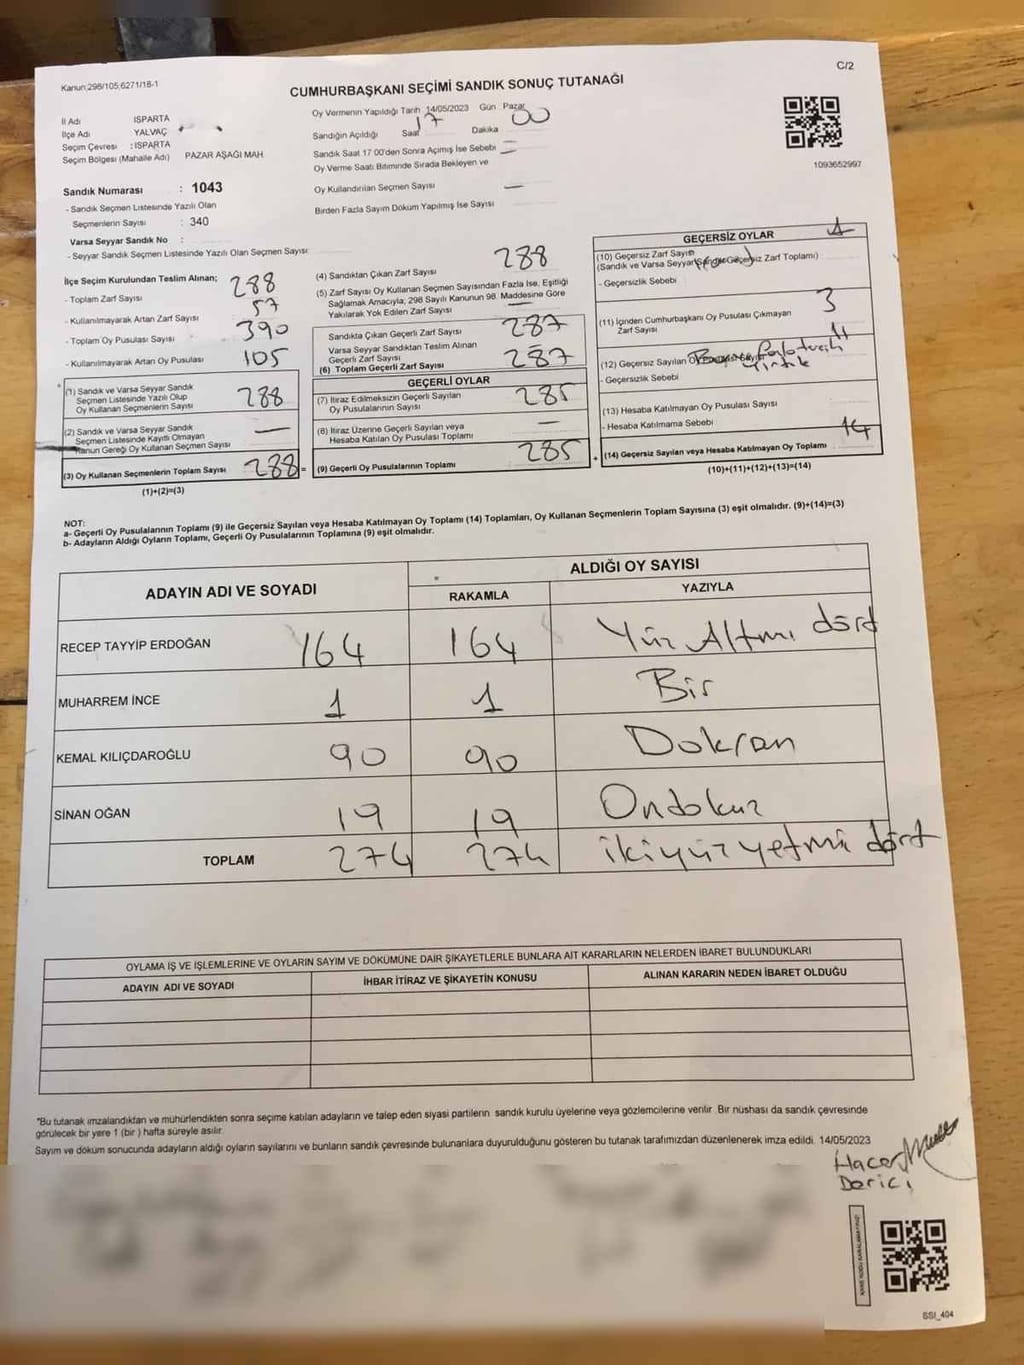 Kanun;298/105;6271/18-1
C/2
CUMHURBAŞKANI SEÇİMİ SANDIK SONUÇ TUTANAĞI
İl Adı ISPARTA
İlçe Adı YALVAÇ
Seçim Çevresi : ISPARTA
Seçim Bölgesi (Mahalle Adı) PAZAR AŞAĞI MAH
Sandık Numarası : 1043
- Sandık Seçmen Listesinde Yazılı Olan
Seçmenlerin Sayısı : 340
Varsa Seyyar Sandık No :
- Seyyar Sandık Seçmen Listesinde Yazılı Olan Seçmen Sayısı:
Oy Vermenin Yapıldığı Tarih 14/05/2023 Gün Pazar
Sandığın Açıldığı Saat 17 Dakika 00
Sandık Saat 17:00'den Sonra Açımış İse Sebebi
Oy Verme Saati Bitiminde Sırada Bekleyen ve
Oy Kullandırılan Seçmen Sayısı —
Birden Fazla Sayım Döküm Yapılmış İse Sayısı
1093652997
İlçe Seçim Kurulundan Teslim Alınan;
- Toplam Zarf Sayısı 288
- Kullanılmayarak Artan Zarf Sayısı 57
- Toplam Oy Pusulası Sayısı 390
- Kullanılmayarak Artan Oy Pusulası 105
(1) Sandık ve Varsa Seyyar Sandık
Seçmen Listesinde Yazılı Olup
Oy Kullanan Seçmenlerin Sayısı 288
(2) Sandık ve Varsa Seyyar Sandık
Seçmen Listesinde Kayıtlı Olmayan
Kanun Gereği Oy Kullanan Seçmen Sayısı —
(3) Oy Kullanan Seçmenlerin Toplam Sayısı 288=
(1)+(2)=(3)
(4) Sandıktan Çıkan Zarf Sayısı 288
(5) Zarf Sayısı Oy Kullanan Seçmen Sayısından Fazla İse, Eşitliği
Sağlamak Amacıyla, 298 Sayılı Kanunun 98. Maddesine Göre
Yakılarak Yok Edilen Zarf Sayısı —
Sandıkta Çıkan Geçerli Zarf Sayısı 287
Varsa Seyyar Sandıktan Teslim Alınan
Geçerli Zarf Sayısı
(6) Toplam Geçerli Zarf Sayısı 287
GEÇERLİ OYLAR
(7) İtiraz Edilmeksizin Geçerli Sayılan
Oy Pusulalarının Sayısı 285
(8) İtiraz Üzerine Geçerli Sayılan veya
Hesaba Katılan Oy Pusulası Toplamı —
(9) Geçerli Oy Pusulalarının Toplamı 285 +
GEÇERSİZ OYLAR
(10) Geçersiz Zarf Sayısı 1
(Sandık ve Varsa Seyyar Geçersiz Zarf Toplamı)
- Geçersizlik Sebebi
(11) İçinden Cumhurbaşkanı Oy Pusulası Çıkmayan
Zarf Sayısı 3
(12) Geçersiz Sayılan
- Geçersizlik Sebebi Yırtık
(13) Hesaba Katılmayan Oy Pusulası Sayısı
- Hesaba Katılmama Sebebi
(14) Geçersiz Sayılan veya Hesaba Katılmayan Oy Toplamı 14
(10)+(11)+(12)+(13)=(14)
NOT:
a- Geçerli Oy Pusulalarının Toplamı (9) ile Geçersiz Sayılan veya Hesaba Katılmayan Oy Toplamı (14) Toplamları, Oy Kullanan Seçmenlerin Toplam Sayısına (3) eşit olmalıdır. (9)+(14)=(3)
b- Adayların Aldığı Oyların Toplamı, Geçerli Oy Pusulalarının Toplamına (9) eşit olmalıdır.
ADAYIN ADI VE SOYADI ALDIĞI OY SAYISI
RAKAMLA YAZIYLA
RECEP TAYYİP ERDOĞAN 164 164 Yüz Altmı dört
MUHARREM İNCE 1 1 Bir
KEMAL KILIÇDAROĞLU 90 90 Doksan
SİNAN OĞAN 19 19 Ondokuz
TOPLAM 274 274 ikiyüz yetmi dört
OYLAMA İŞ VE İŞLEMLERİNE VE OYLARIN SAYIM VE DÖKÜMÜNE DAİR ŞİKAYETLERLE BUNLARA AİT KARARLARIN NELERDEN İBARET BULUNDUKLARI
ADAYIN ADI VE SOYADI İHBAR İTİRAZ VE ŞİKAYETİN KONUSU ALINAN KARARIN NEDEN İBARET OLDUĞU
*Bu tutanak imzalandıktan ve mühürlendikten sonra seçime katılan adayların ve talep eden siyasi partilerin sandık kurulu üyelerine veya gözlemcilerine verilir. Bir nüshası da sandık çevresinde
görülecek bir yere 1 (bir) hafta süreyle asılır.
Sayım ve döküm sonucunda adayların aldığı oyların sayılarını ve bunların sandık çevresinde bulunanlara duyurulduğunu gösteren bu tutanak tarafımızdan düzenlenerek imza edildi. 14/05/2023
Hacer
Derici
SSI_404